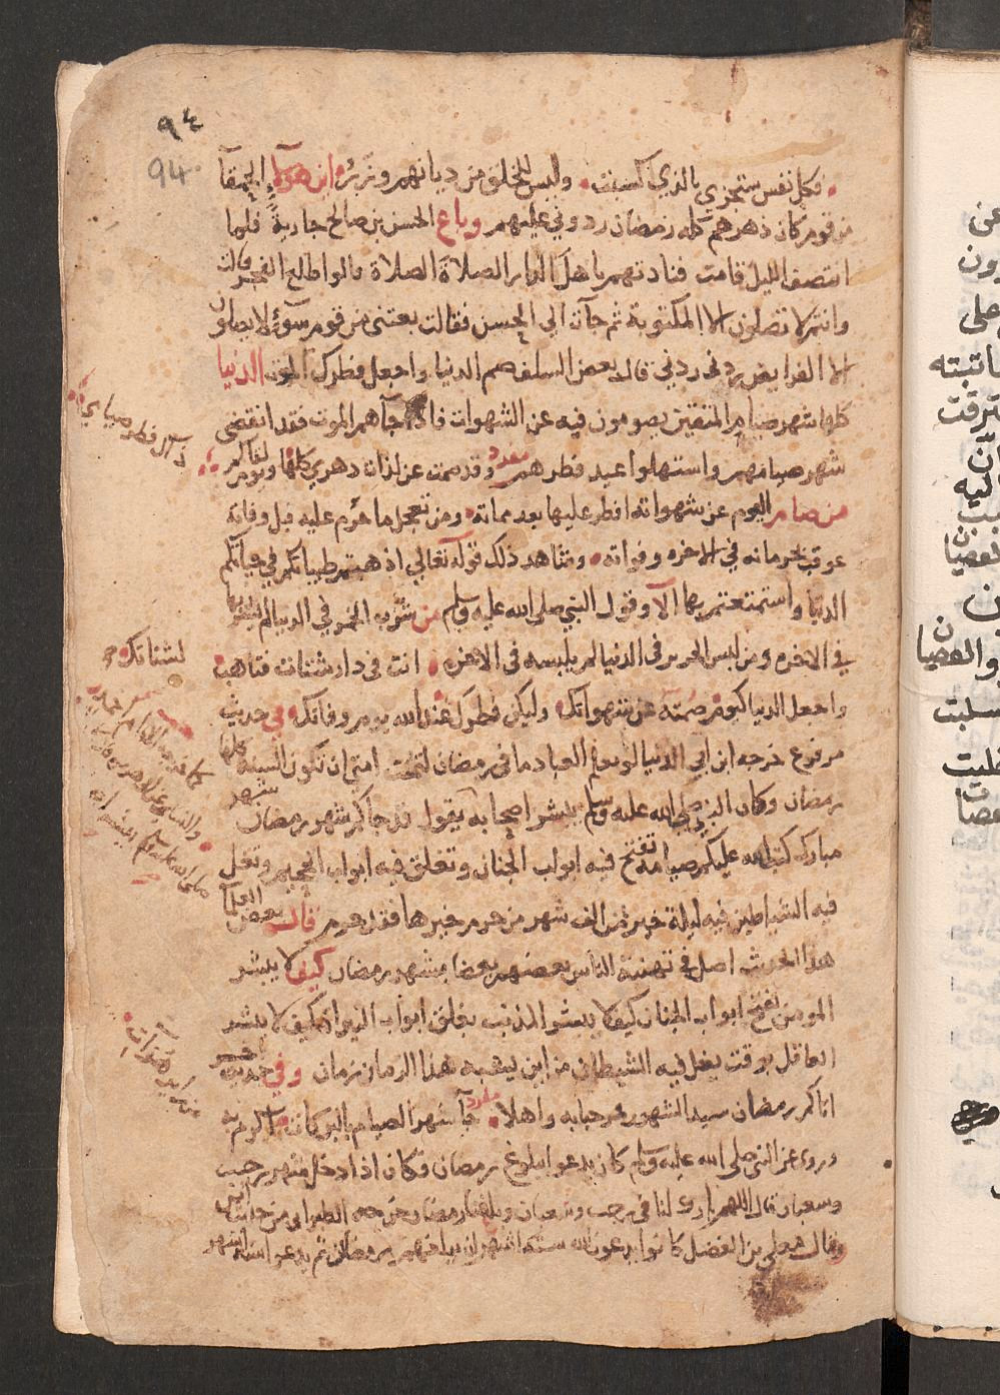 ٩٤
94
فكل نفس ستجزي بالذي كسبت وليس للخلق من ديانهم وزر اين هولآء الحمقآ
من قوم كان دهرهم كله رمضان ردوني عليهم وباع الحسن بن صالح جارية فلما
انتصف الليل قامت فنادتهم يا هل الدار الصلاة الصلاة قالوا طلع الفجر قالت
وانتم لا تصلون الا المكتوبة ثم جآت الي الحسن فقالت بعتني من قوم سوء لا يصلون
الا الفرايض ردني ردني قال بعض السلف صم الدنيا واجعل فطرك الموت الدنيا
كلها شهر صيام المتقين يصومون فيه عن الشهوات فاذا جآهم الموت فقد انقضي
شهر صيامهم واستهلوا عيد فطرهم مفرد وقد صمت عن لذات دهري كلها ويوم لقاكم
ذآك فطر صيامي
من صام اليوم عن شهواته افطر عليها بعد مماته ومن تعجل ما حرم عليه قبل وفاته
عوقب بحرمانه في الاخره وفواته وشاهد ذلك قوله تعالي اذهبتم طيباتكم في حياتكم
الدنيا واستمتعتم بها الآ وقول النبي صلي الله عليه وسلم من شرب الخمر في الدنيا لم يشربها
في الاخره ومن لبس الحرير في الدنيا لم يلبسه في الاخره انت في دار شتات فتاهب
لشتاتك
واجعل الدنيا كيوم صمته عن شهواتك وليكن فطرك عند الله يوم وفاتك في حديث
مرفوع خرجه ابن ابي الدنيا لو يعلم العباد ما في رمضان لتمنت امتي ان تكون السنه كلها
رمضان وكان النبي صلي الله عليه وسلم يبشر اصحابه يقول قد جاكم شهر رمضان شهر
مبارك كتب الله عليكم صيامه تفتح فيه ابواب الجنان وتغلق فيه ابواب الجحيم وتغل
فيه الشياطين فيه ليلة خير من الف شهر من حرم خيرها فقد حرم قال بعض العلما
هذا الحديث اصل في تهنئة الناس بعضهم بعضا بشهر رمضان كيف لا يبشر
المومن بفتح ابواب الجنان كيف لا يبشر المذنب بغلق ابواب النيران كيف لا يبشر
العاقل بوقت يغل فيه الشيطان من اين يشبه هذا الزمان زمان وفي حديث
اتاكم رمضان سيد الشهور فمرحبا به واهلا مفرد جآ شهر الصيام بالبركات فاكرم به
وروي عن النبي صلي الله عليه وسلم كان يدعو ببلوغ رمضان وكان اذا دخل شهر رجب
وشعبان قال اللهم بارك لنا في رجب وشعبان وبلغنا رمضان خرجه الطبراني من حديث انس
وقال معلي بن الفضل كانوا يدعون الله ستة اشهر ان يبلغهم رمضان ثم يدعو استة اشهر